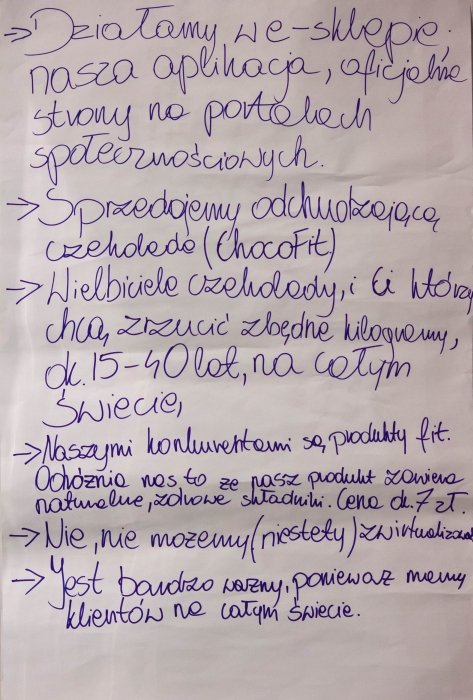 → Działamy w e-sklepie;
nasza aplikacja, oficjalne
strony na portalach
społecznościowych.
→ Sprzedajemy odchudzającą
czekoladę (ChocoFit)
→ Wielbiciele czekolady, i Ci którzy
chcą zrzucić zbędne kilogramy,
ok. 15-40 lat, na całym
świecie,
→ Naszymi konkurentami są produkty fit.
Odróżnia nas to że nasz produkt zawiera
naturalne, zdrowe składniki. Cena ok. 7 zł.
→ Nie, nie możemy (niestety) zwirtualizować
→ Jest bardzo ważny, ponieważ mamy
klientów na całym świecie.